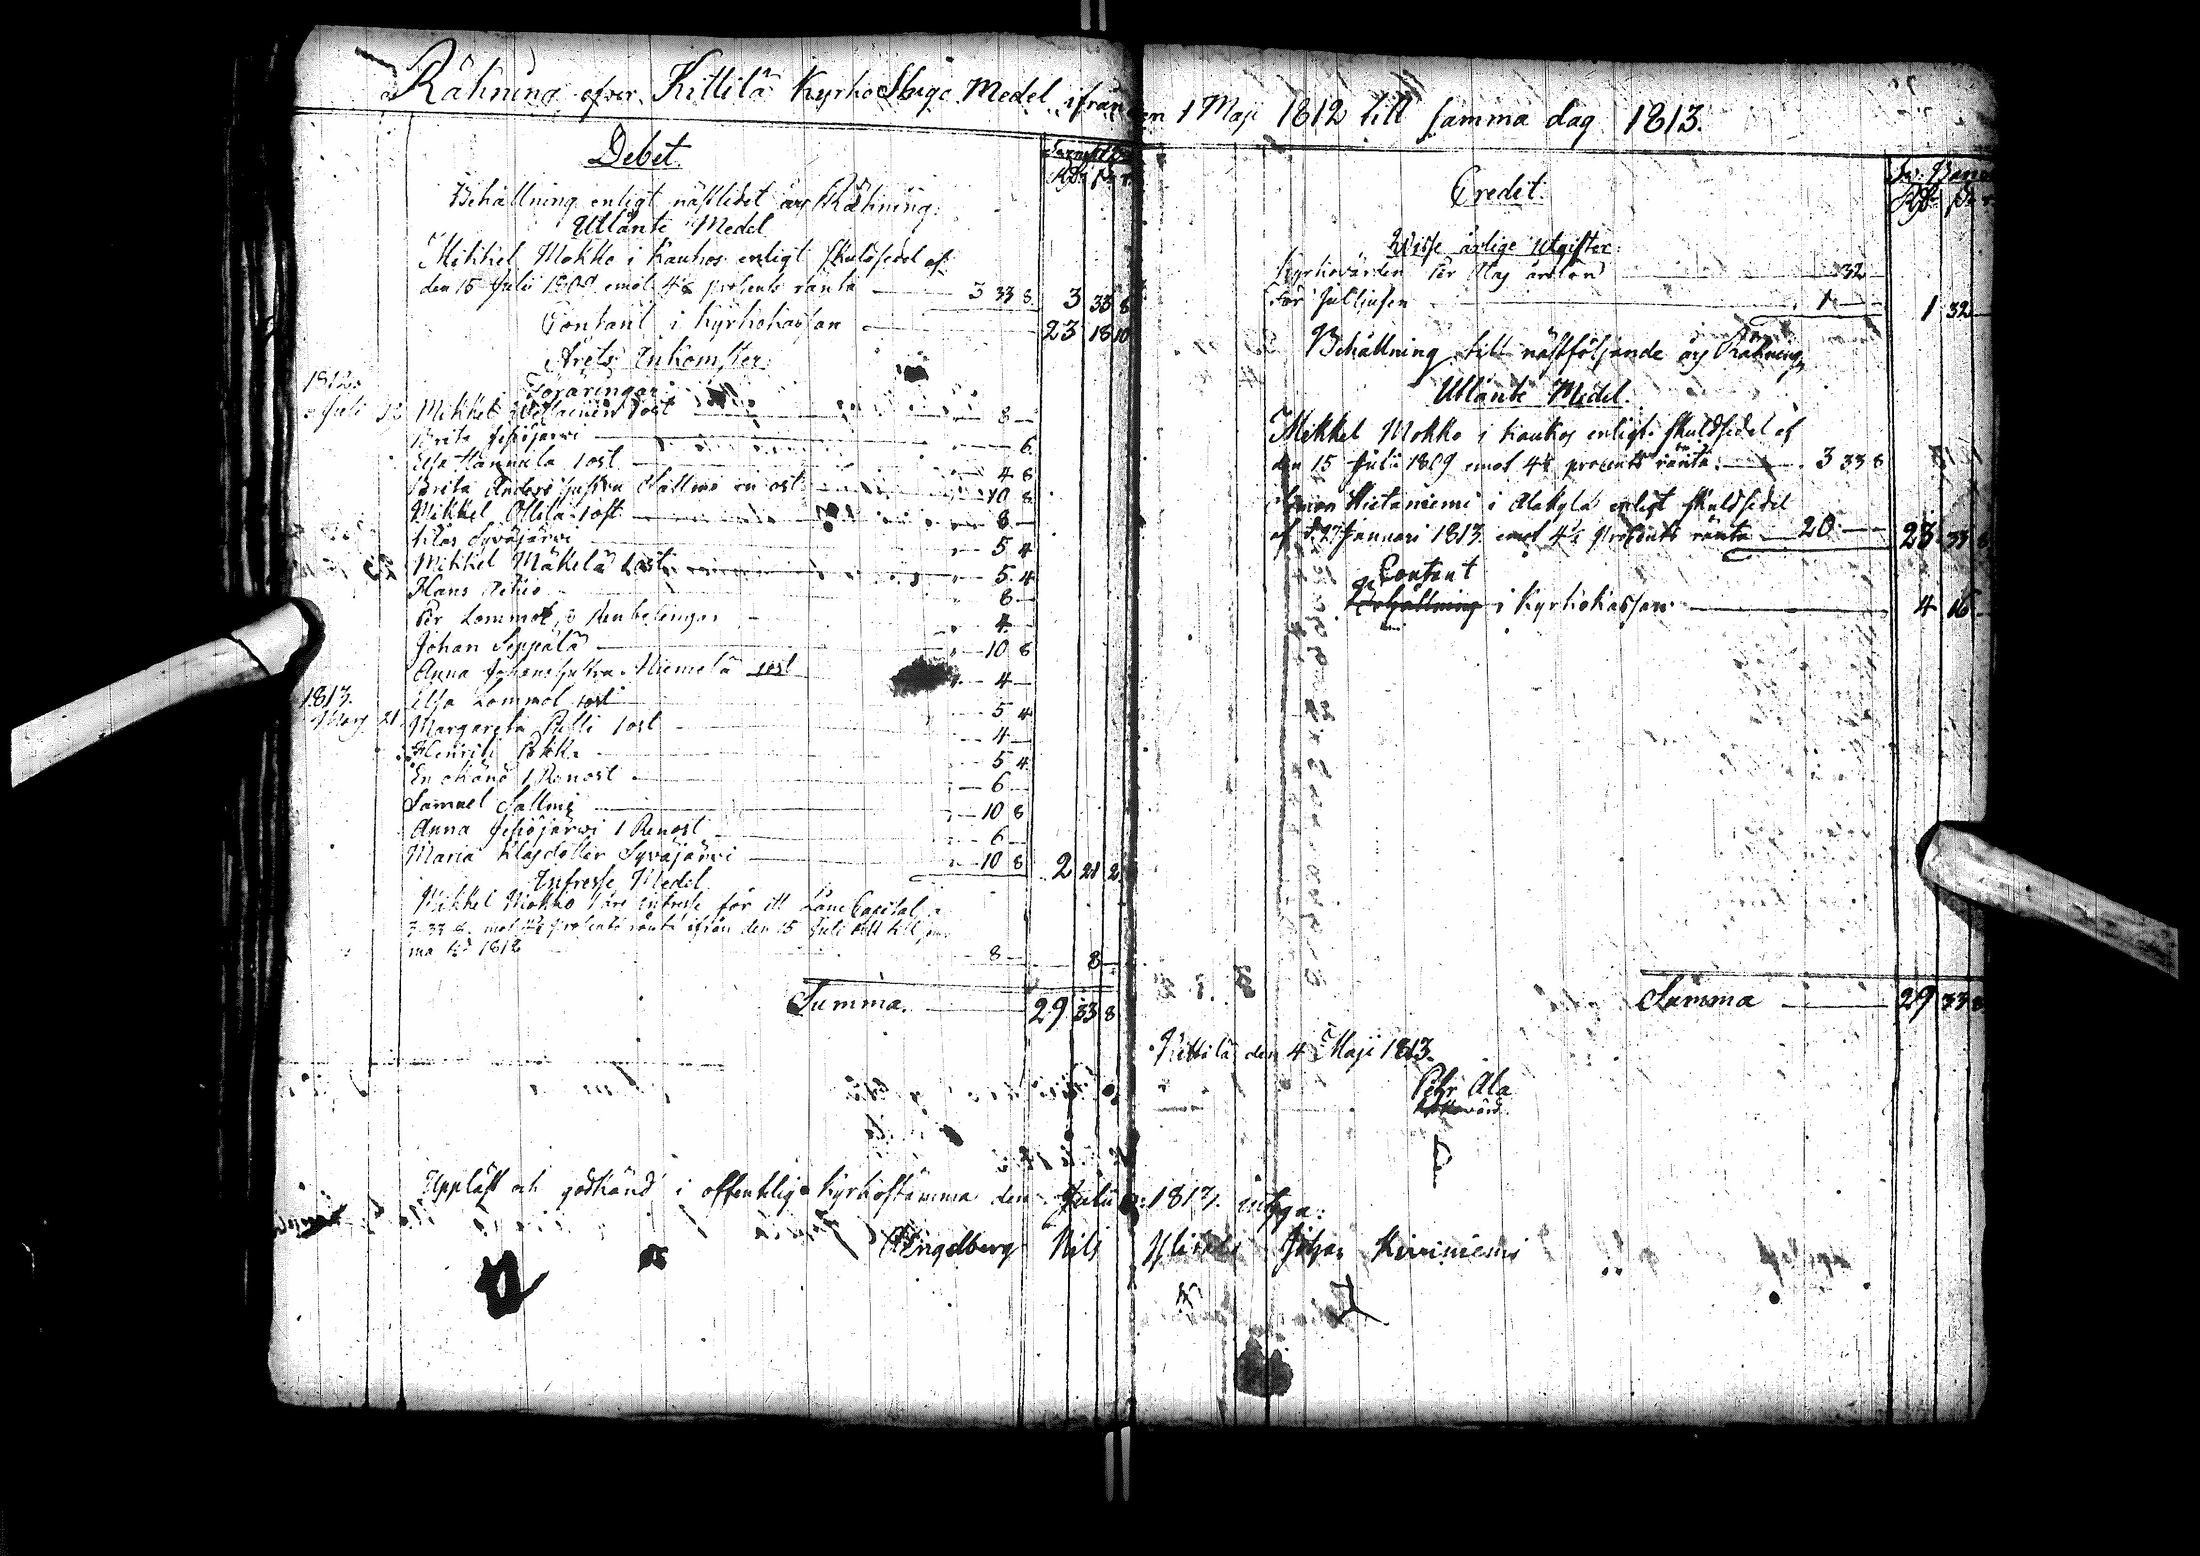 Räkning öfver Kittilä Kyrkios Medel ifrån den 1 Maji 1812 till samma dag 1813.
Debet.
Behållning enligt nästledet års Räkning.
Utlånte Medel
Mikkel Mokko i Kaukos enligt skuldsedel af
den 15 Julii 1809 emot procents ränta 3 33 8 3 33 8
Contant i Kyrkokassan 23 18 10
Årets Inkomster.
1812. Föräringar:
Juli 12 Mikkel 1 ost 8
Brita Jesiöjärwi 6
Elsa Hannula 1 ost 4 8
Brita Anders hustru en ost 10 8
Mikkel Ollila 1 ost 8
Klas Syväjärwi 5 4
Mikkel Mäkelä 1 ost 5 4
Hans 8
Per Lommol 4
Johan Seppälä 10 8
Anna Johans hustru Niemelä 1 ost 4
1813. Elsa Lommol 1 ost 5 4
Mars 21 Margareta 1 ost 4
Henrik 5 4
En okänd 1 Renost 6
Samuel Sallmi 10 8
Anna Jesiöjärwi 1 Renost 6
Maria Klasdotter Syväjärwi 10 8 2 21 2
Intresse Medel
Mikkel Mokko 1 års intresse för ett Låne Capital
3. 33. 8. mot procents ränta ifrån den 15 Juli till
1812 8 8
Summa. 29 33 8
Credit.
Wisse årlige utgifter:
Kyrkovärden Per Alas årslön 32
För Julljusen 1 1 32
Behållning till nästföljande års Räkning
Utlånte Medel.
Mikkel Mokko i Kaukos enligt skuldsedel af
den 15 Julii 1809 emot procents ränta 3 33 8
Hietaniemi i Alakylä enligt skuldsedel
af d. 27 Januari 1813 emot procents ränta 20 23 33 8
Contant
Behållning i Kyrkokassan 4 16
Summa 29 33 8
Kittilä den 4 Maji 1813.
Petr Ala
Uppläst och godkänd i offentelig Kyrkostämma den Julii 1813. intyga:
Engelberg Nils Johan Kiviniemi